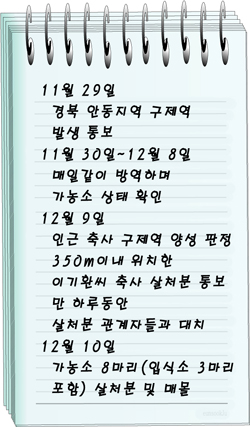 11월 29일
경북 안동지역 구제역
발생 통보
11월 30일~12월 8일
매일같이 방역하며
가농소 상태 확인
12월 9일
인근 축사 구제역 양성 판정
350m이내 위치한
이기환씨 축사 살처분 통보
만 하루동안
살처분 관계자들과 대치
12월 10일
가농소 8마리(임식소 3마리
포함) 살처분 및 매몰